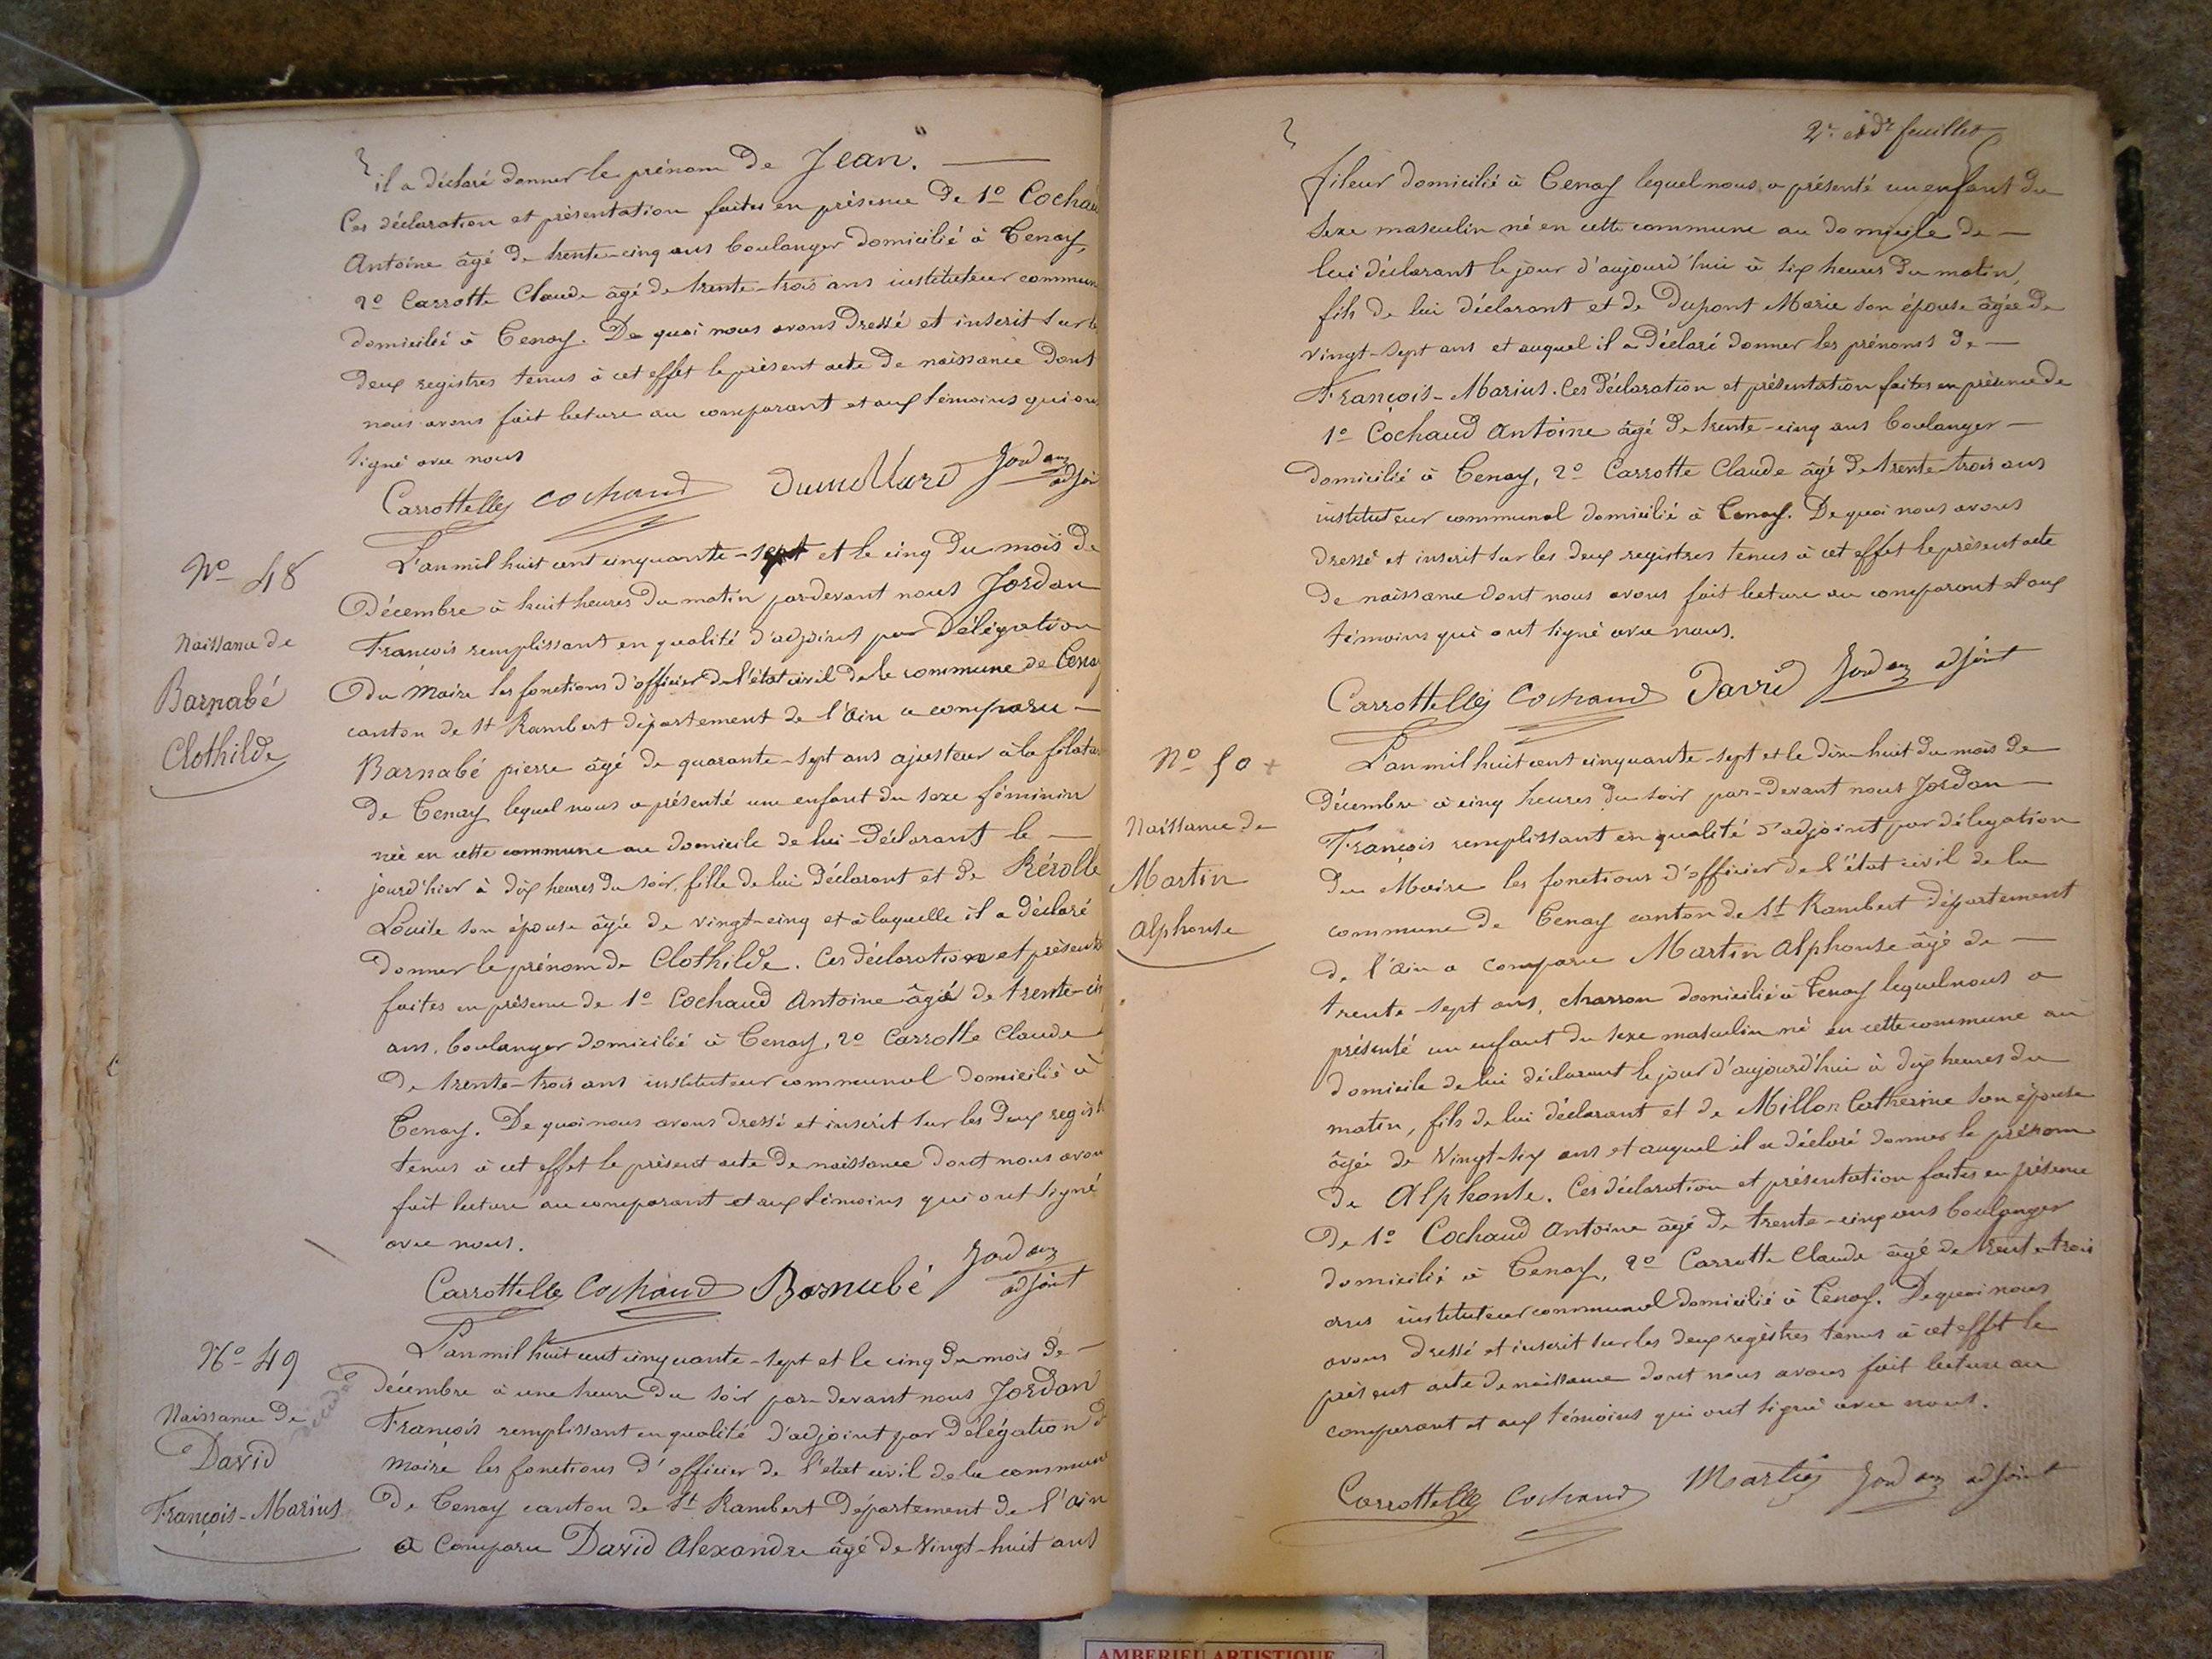 il a déclaré donner le prénom de Jean.
Ces déclaration et présentation faites en présence de 1º Cochaud
Antoine âgé de trente-cinq ans boulanger domicilié à Tenay,
2º Carrotte Claude âgé de trente-trois ans instituteur commun
domicilié à Tenay. De quoi nous avons dressé et inscrit sur le
deux registres tenus à cet effet le présent acte de naissance dont
nous avons fait lecture au comparant et aux témoins qui on
signé avec nous
Carrotte Cochaud Dumollard Jordan adjoi
Nº 48
Naissance de
Barnabé
Clothilde
L'an mil huit cent cinquante-sept et le cinq du mois de
Décembre à huit heures du matin par-devant nous Jordan
François remplissant en qualité d'adjoint par délégation
du Maire les fonctions d'officier de l'état civil de la commune de Tenay
canton de St Rambert département de l'Ain a comparu —
Barnabé pierre âgé de quarante-sept ans ajusteur à la filatu
de Tenay lequel nous a présenté une enfant du sexe féminin
née en cette commune au domicile de lui-déclarant le —
jourd'hier à dix heures du soir, fille de lui déclarant et de Rérolle
Louise son épouse âgée de vingt-cinq et à laquelle il a déclaré
donner le prénom de Clothilde. Ces déclaration et présent
faites en présence de 1º Cochaud Antoine âgé de trente-ci
ans, boulanger domicilié à Tenay, 2º Carrotte Claude
de trente-trois ans instituteur communal domicilié à
Tenay. De quoi nous avons dressé et inscrit sur les deux regist
tenus à cet effet le présent acte de naissance dont nous avon
fait lecture au comparant et aux témoins qui ont signé
avec nous.
Carrotte Cochaud Barnabé Jordan adjoint
Nº 49
Naissance de
David
François-Marius
décédé
L'an mil huit cent cinquante-sept et le cinq du mois de —
Décembre à une heure du soir par-devant nous Jordan
François remplissant en qualité d'adjoint par délégation d
Maire les fonctions d'officier de l'état civil de la commune
de Tenay canton de St Rambert département de l'Ain
a comparu David Alexandre âgé de vingt-huit ans
2e et dr feuillet
fileur domicilié à Tenay lequel nous a présenté un enfant du
sexe masculin né en cette commune au domicile de —
lui déclarant le jour d'aujourd'hui à six heures du matin,
fils de lui déclarant et de Dupont Marie son épouse âgée de
vingt-sept ans et auquel il a déclaré donner les prénoms de —
François-Marius. Ces déclaration et présentation faites en présence de
1º Cochaud Antoine âgé de trente-cinq ans boulanger —
domicilié à Tenay, 2º Carrotte Claude âgé de trente-trois ans
instituteur communal domicilié à Tenay. De quoi nous avons
dressé et inscrit sur les deux registres tenus à cet effet le présent acte
de naissance dont nous avons fait lecture au comparant et aux
témoins qui ont signé avec nous.
Carrotte Cochaud David Jordan adjoint
Nº 50 +
Naissance de
Martin
Alphonse
L'an mil huit cent cinquante-sept et le dix-huit du mois de
Décembre à cinq heures du soir par-devant nous Jordan —
François remplissant en qualité d'adjoint par délégation
du Maire les fonctions d'officier de l'état civil de la
commune de Tenay canton de St Rambert département
de l'Ain a comparu Martin Alphonse âgé de —
trente-sept ans, charron domicilié à Tenay lequel nous a
présenté un enfant du sexe masculin né en cette commune au
domicile de lui déclarant le jour d'aujourd'hui à dix heures du
matin, fils de lui déclarant et de Millon Catherine son épouse
âgée de vingt-six ans et auquel il a déclaré donner le prénom
de Alphonse. Ces déclaration et présentation faites en présence
de 1º Cochaud Antoine âgé de trente-cinq ans boulanger
domicilié à Tenay, 2º Carrotte Claude âgé de trente-trois
ans instituteur communal domicilié à Tenay. De quoi nous
avons dressé et inscrit sur les deux registres tenus à cet effet le
présent acte de naissance dont nous avons fait lecture au
comparant et aux témoins qui ont signé avec nous.
Carrotte Cochaud Martin Jordan adjoint
AMBERIEU ARTISTIQUE